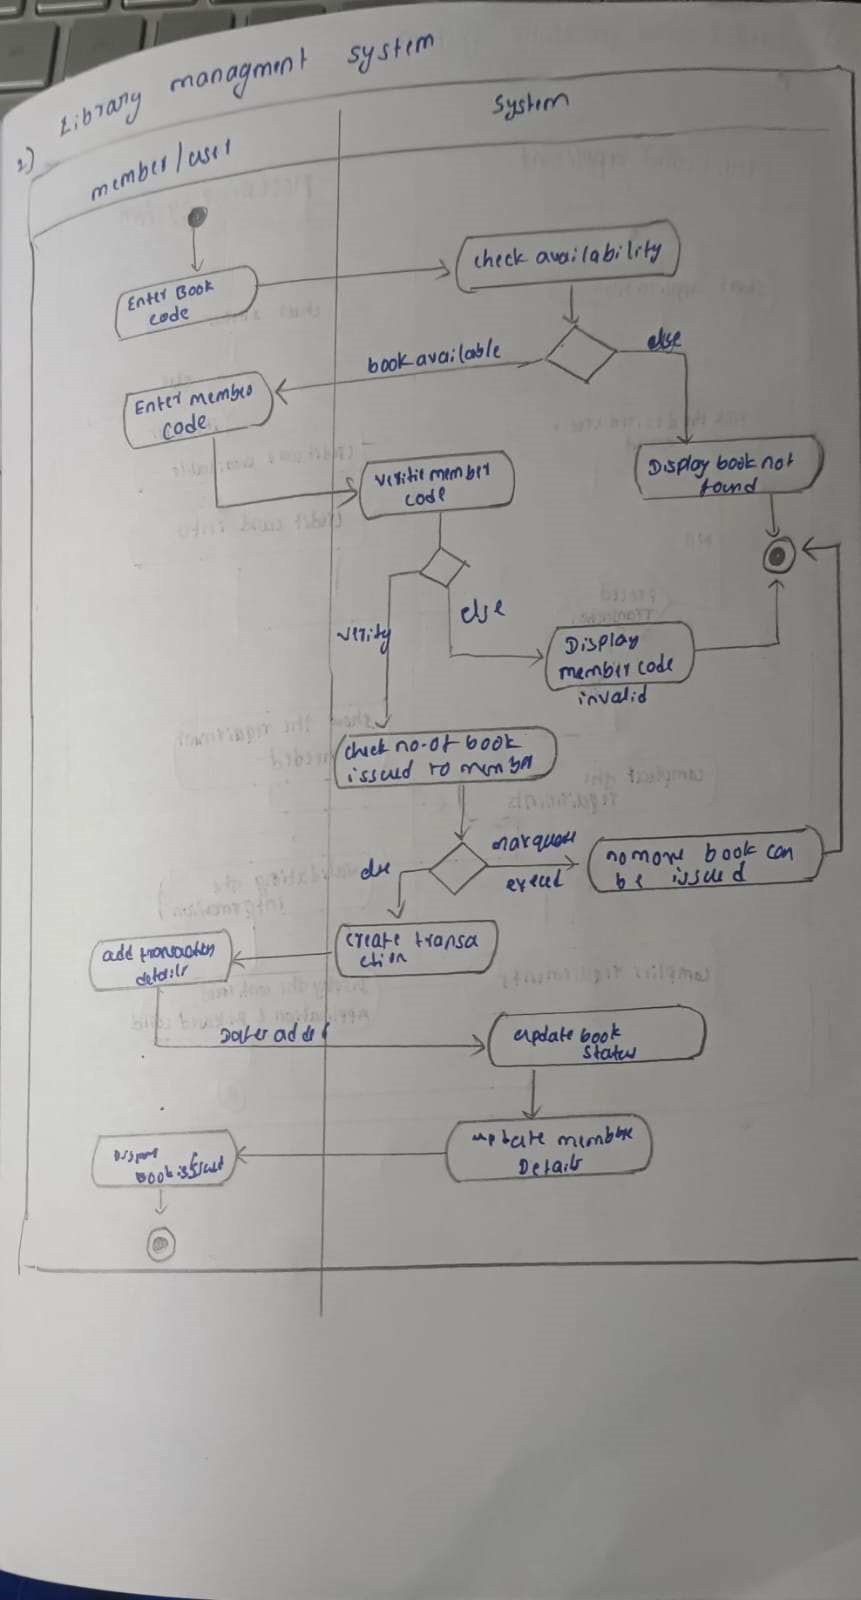 2) Library managment system
member/user
System
Enter Book
code
check availability
book available
else
Enter member
code
Display book not
found
verifie member
code
verify
else
Display
member code
invalid
check no-of book
issued to member
else
exceed
no more book can
be issued
create transa
ction
add transaction
details
update book
status
update member
Details
Book issued